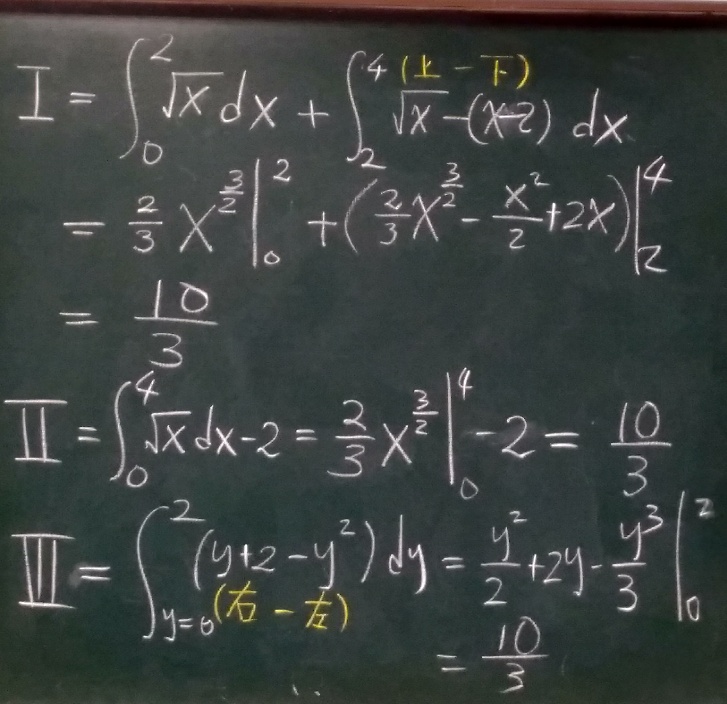 I = ∫₀² √x dx + ∫₂⁴ (上 - 下) √x - (x-2) dx
= 2/3 x^(3/2) |₀² + (2/3 x^(3/2) - x²/2 + 2x) |₂⁴
= 10/3
II = ∫₀⁴ √x dx - 2 = 2/3 x^(3/2) |₀⁴ - 2 = 10/3
III = ∫_{y=0}² (y+2-y²) dy = y²/2 + 2y - y³/3 |₀²
(右 - 左)
= 10/3